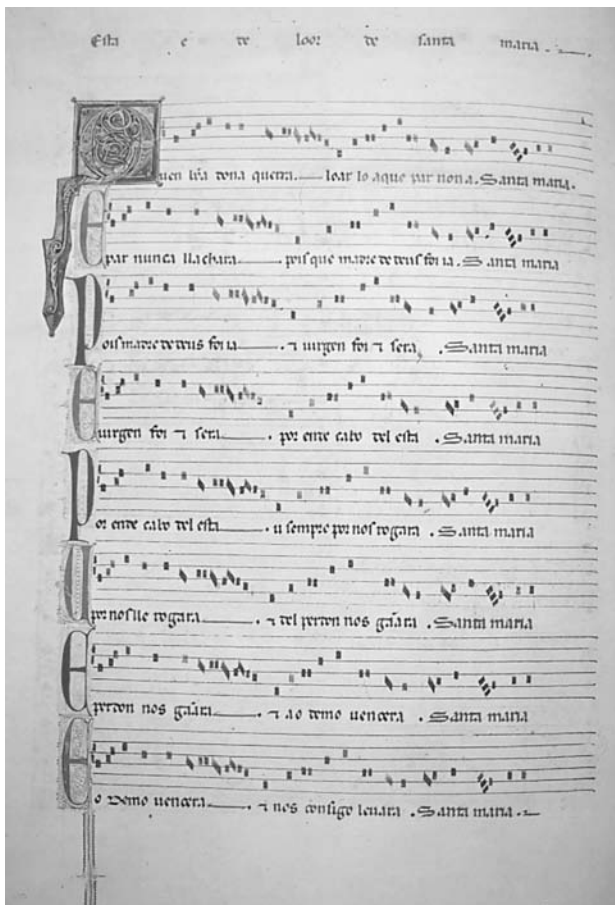 Esta e de loor de santa maria .
Quen bõa dona querra loar lo aque par non a . Santa maria .
E par nunca llachara pois que madre de deus foi ia . Santa maria
Pois madre de deus foi ia . ⁊ uirgen foi ⁊ sera . Santa maria
E uirgen foi ⁊ sera . por ende cabo del esta . Santa maria
Por ende cabo del esta . u sempre por nos rogara . Santa maria
U por nos lle rogara . ⁊ del perdon nos gãara . Santa maria
E perdon nos gãara . ⁊ ao demo uencera . Santa maria
E o demo uencera . ⁊ nos consigo leuara . Santa maria .